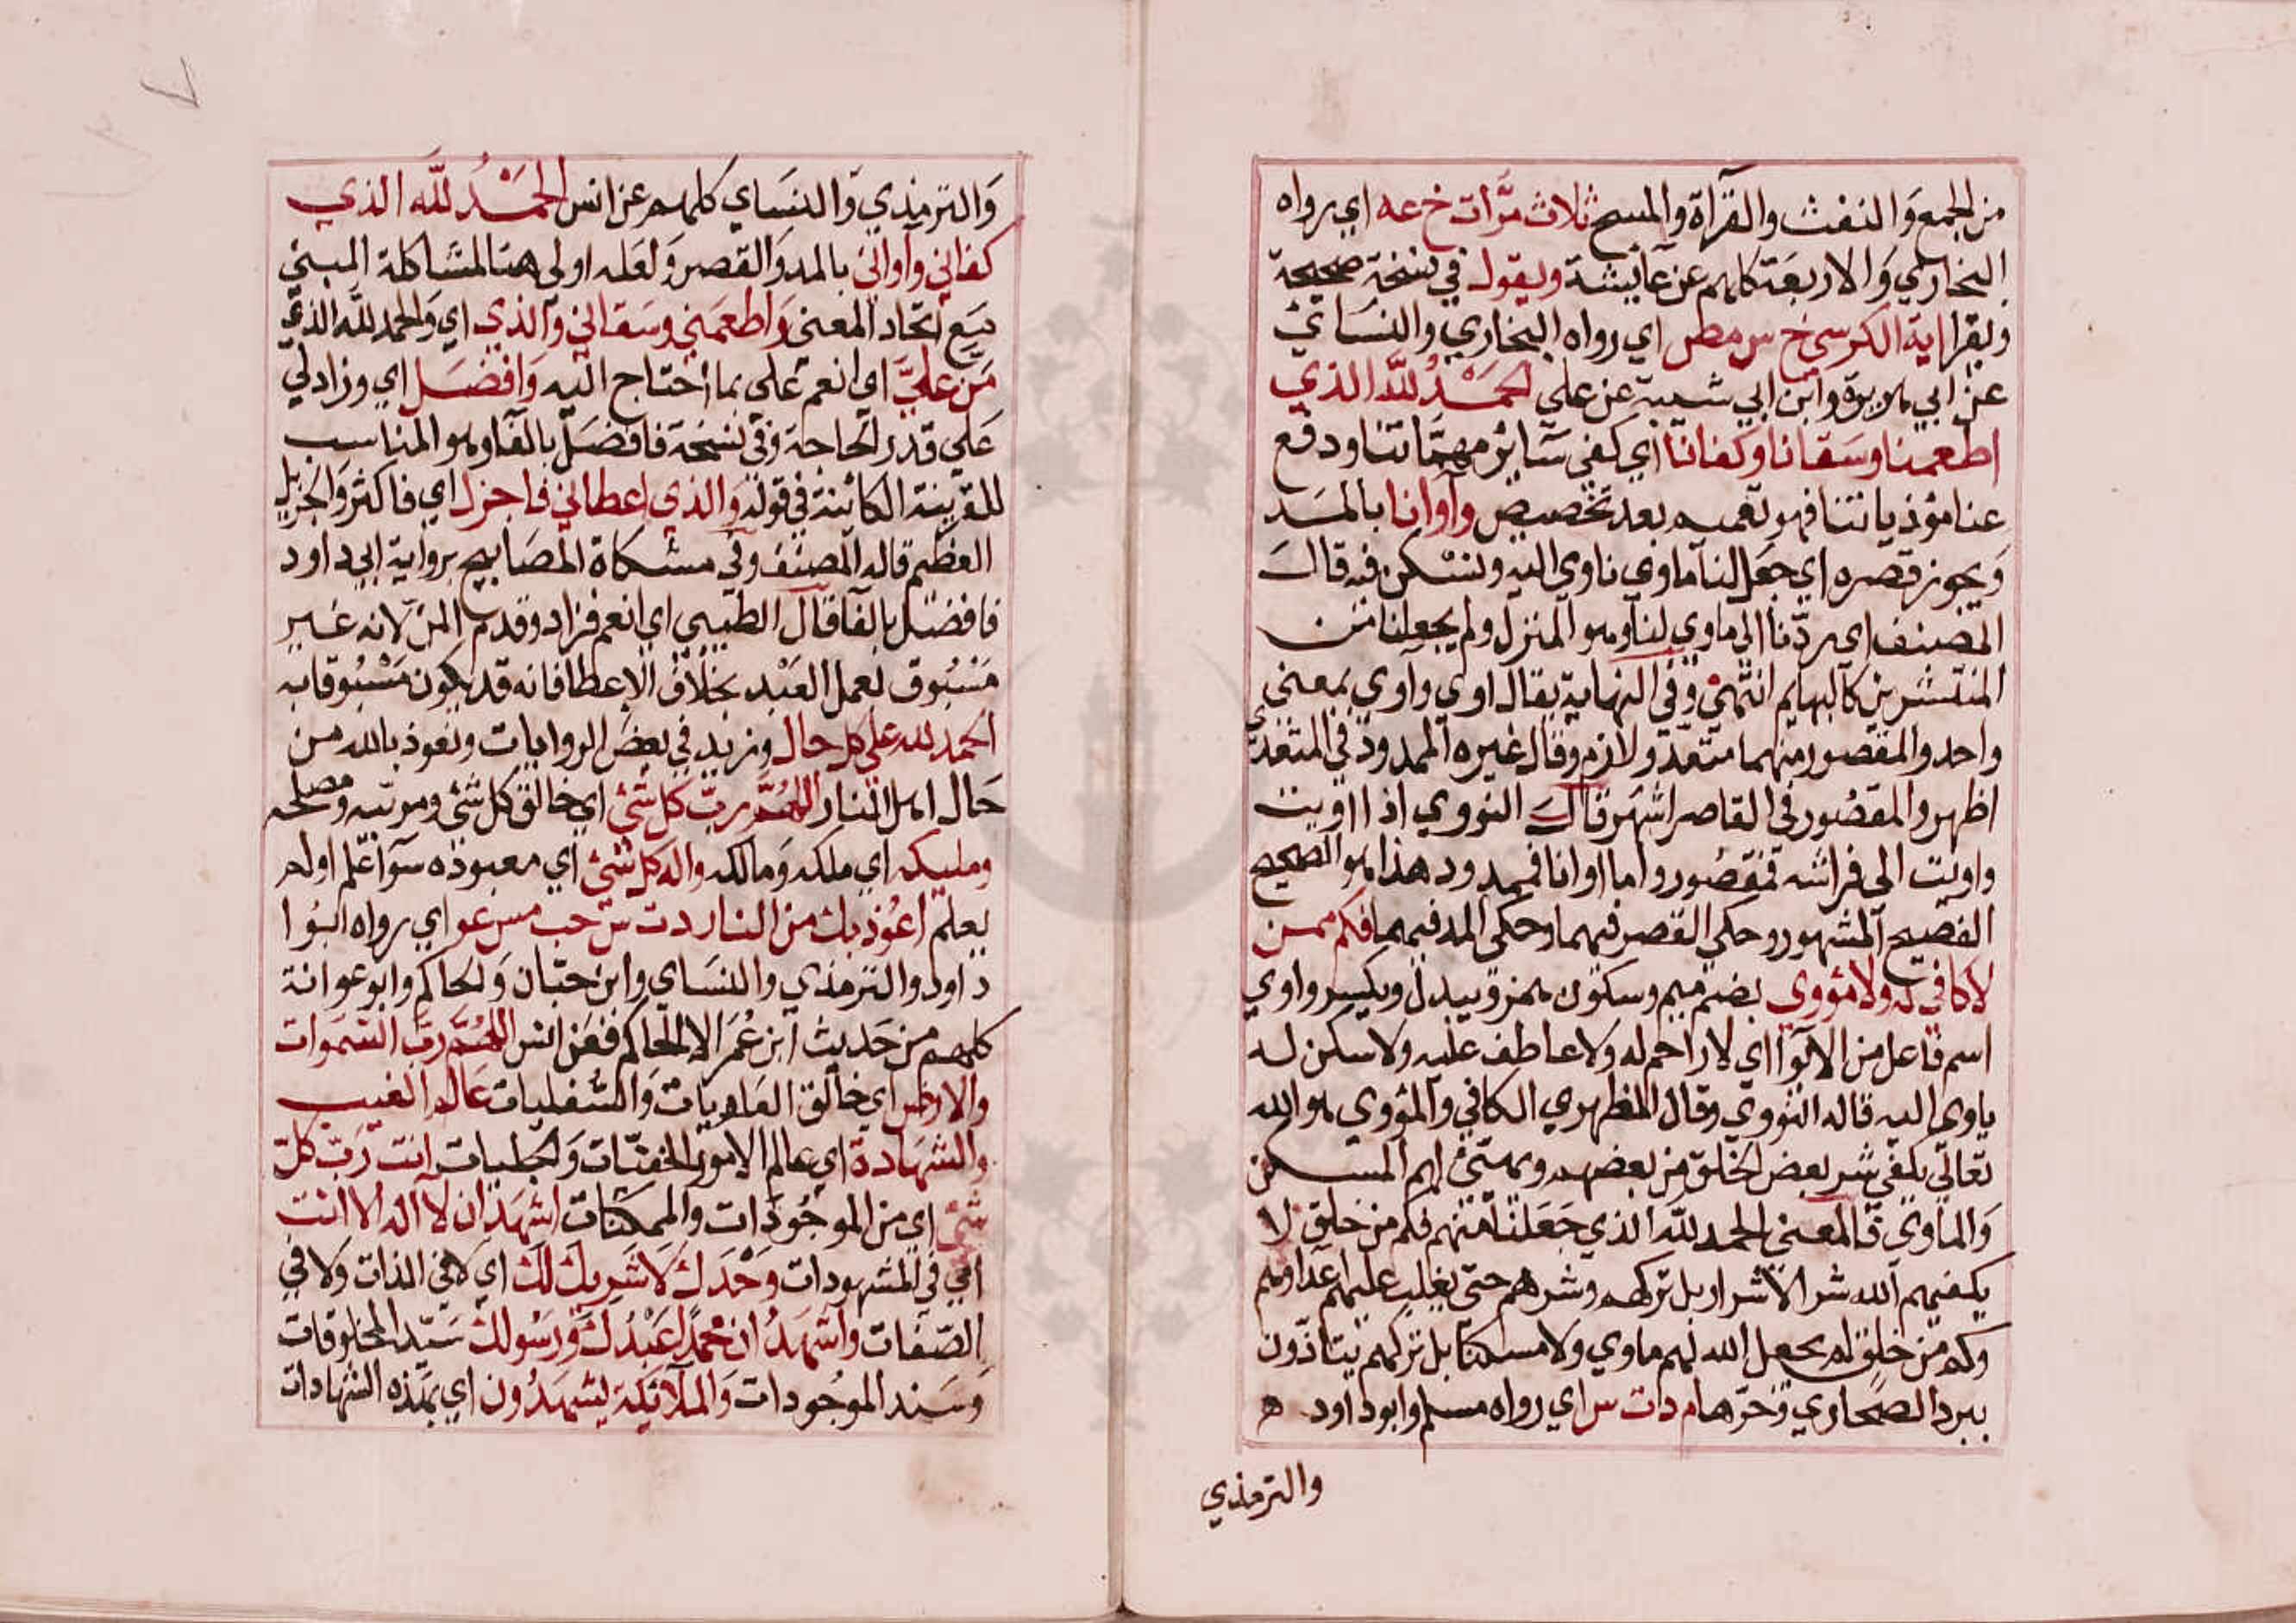 من الجمع والنفث والقرآة والمسح ثلاث مرّات خ عه اي رواه
البخاري والاربعة كلهم عن عايشة ويقول في نسخة صحيحة
ويقرا اية الكرسي خ س مص اي رواه البخاري والنسائي
عن ابي هريرة وابن ابي شيبة عن علي الحمد لله الذي
اطعمنا وسقانا وكفانا اي كفي سآئر مهمّاتنا ودفع
عنا مؤذياتنا فهو تعميم بعد تخصيص وآوانا بالمد
ويجوز قصره اي جعل لنا ماوي ناوي اليه ونسكن فيه قال
المصنف اي ردّنا الي ماوي لنا وهو المنزل ولم يجعلنا من
المنتشرين كالبهايم انتهي وفي النهاية يقال اوي وآوي بمعني
واحد والمقصور منهما متعد ولازم وقال غيره الممدود في المتعدي
اظهر والمقصور في القاصر اشهر قال النووي اذا اويت
واويت الي فراشه فمقصور واما اوانا فممدود هذا هو الصحيح
الفصيح المشهور وحكي القصر فيهما وحكي المد فيهما فكم ممن
لا كافي له ولا مؤوي بضم ميم وسكون همز ويبدل وبكسر واو وي
اسم فاعل من الايوا اي لا راحم له ولا عاطف عليه ولا سكن له
ياوي اليه قاله النووي وقال المظهري الكافي والمؤوي هو الله
تعالي يكفي شر بعض الخلق من بعضهم ويهيّئ لهم المسكن
والماوي فالمعني الحمد لله الذي جعلنا منهم فكم من خلق لا
يكفيهم الله شر الاشرار بل تركهم وشرهم حتي يغلب عليهم اعداوهم
وكم من خلق لم يجعل الله لهم ماوي ولا مسكنا بل تركهم يتاذون
ببرد الصحاري وحرّها م د ت س اي رواه مسلم وابو داود
والترمذي
والترمذي والنساي كلهم عن انس الحمد لله الذي
كفاني وآواني بالمد والقصر ولعله اولي هنا لمشاكلة المبني
مع اتحاد المعني واطعمني وسقاني والذي اي والحمد لله الذي
من عليّ اي انعم علي بما احتاج اليه وافضل اي وزاد لي
علي قدر الحاجة وفي نسخة فافضل بالفا وهو المناسب
للقرينة الكائنة في قوله والذي اعطاني فاجزل اي فاكثر والجزيل
العظيم قاله المصنف وفي مشكاة المصابيح برواية ابي داود
فافضل بالفا قال الطيبي اي انعم فزاد وقدم المن لانه غير
مسبوق لعمل العبد بخلاف الاعطا فانه قد يكون مسبوقا به
الحمد لله علي كل حال وزيد في بعض الروايات ونعوذ بالله من
حال اهل النار اللهمّ ربّ كل شئ اي خالق كل شئ ومربيه ومصلحه
ومليكه اي ملكه ومالكه واله كل شئ اي معبوده سوآ علم او لم
يعلم اعوذ بك من النار د ت س حب مس عو اي رواه ابوا
داود والترمذي والنساي وابن حبّان والحاكم وابو عوانة
كلهم من حديث ابن عمر الا الحاكم فعن انس اللهمّ ربّ السموات
والارض اي خالق العلويات والسفليات عالم الغيب
والشهادة اي عالم الامور الخفيّات والجليات انت ربّ كل
شئ اي من الموجودات والممكنات اشهد ان لا اله الا انت
اي في المشهودات وحدك لا شريك لك اي لا في الذات ولا في
الصّفات واشهد ان محمّدا عبدك ورسولك سيّد المخلوقات
وسند الموجودات والملآئكة يشهدون اي بهذه الشهادات